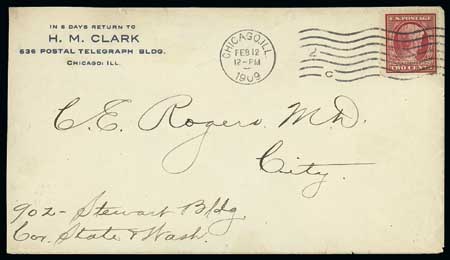 IN 5 DAYS RETURN TO
H. M. CLARK
636 POSTAL TELEGRAPH BLDG.
CHICAGO, ILL.
CHICAGO, ILL.
FEB 12
12-PM
1909
2
C
U.S. POSTAGE
TWO CENTS
C. E. Rogers M.D.
City.
902- Stewart Bldg.
Cor. State & Wash.